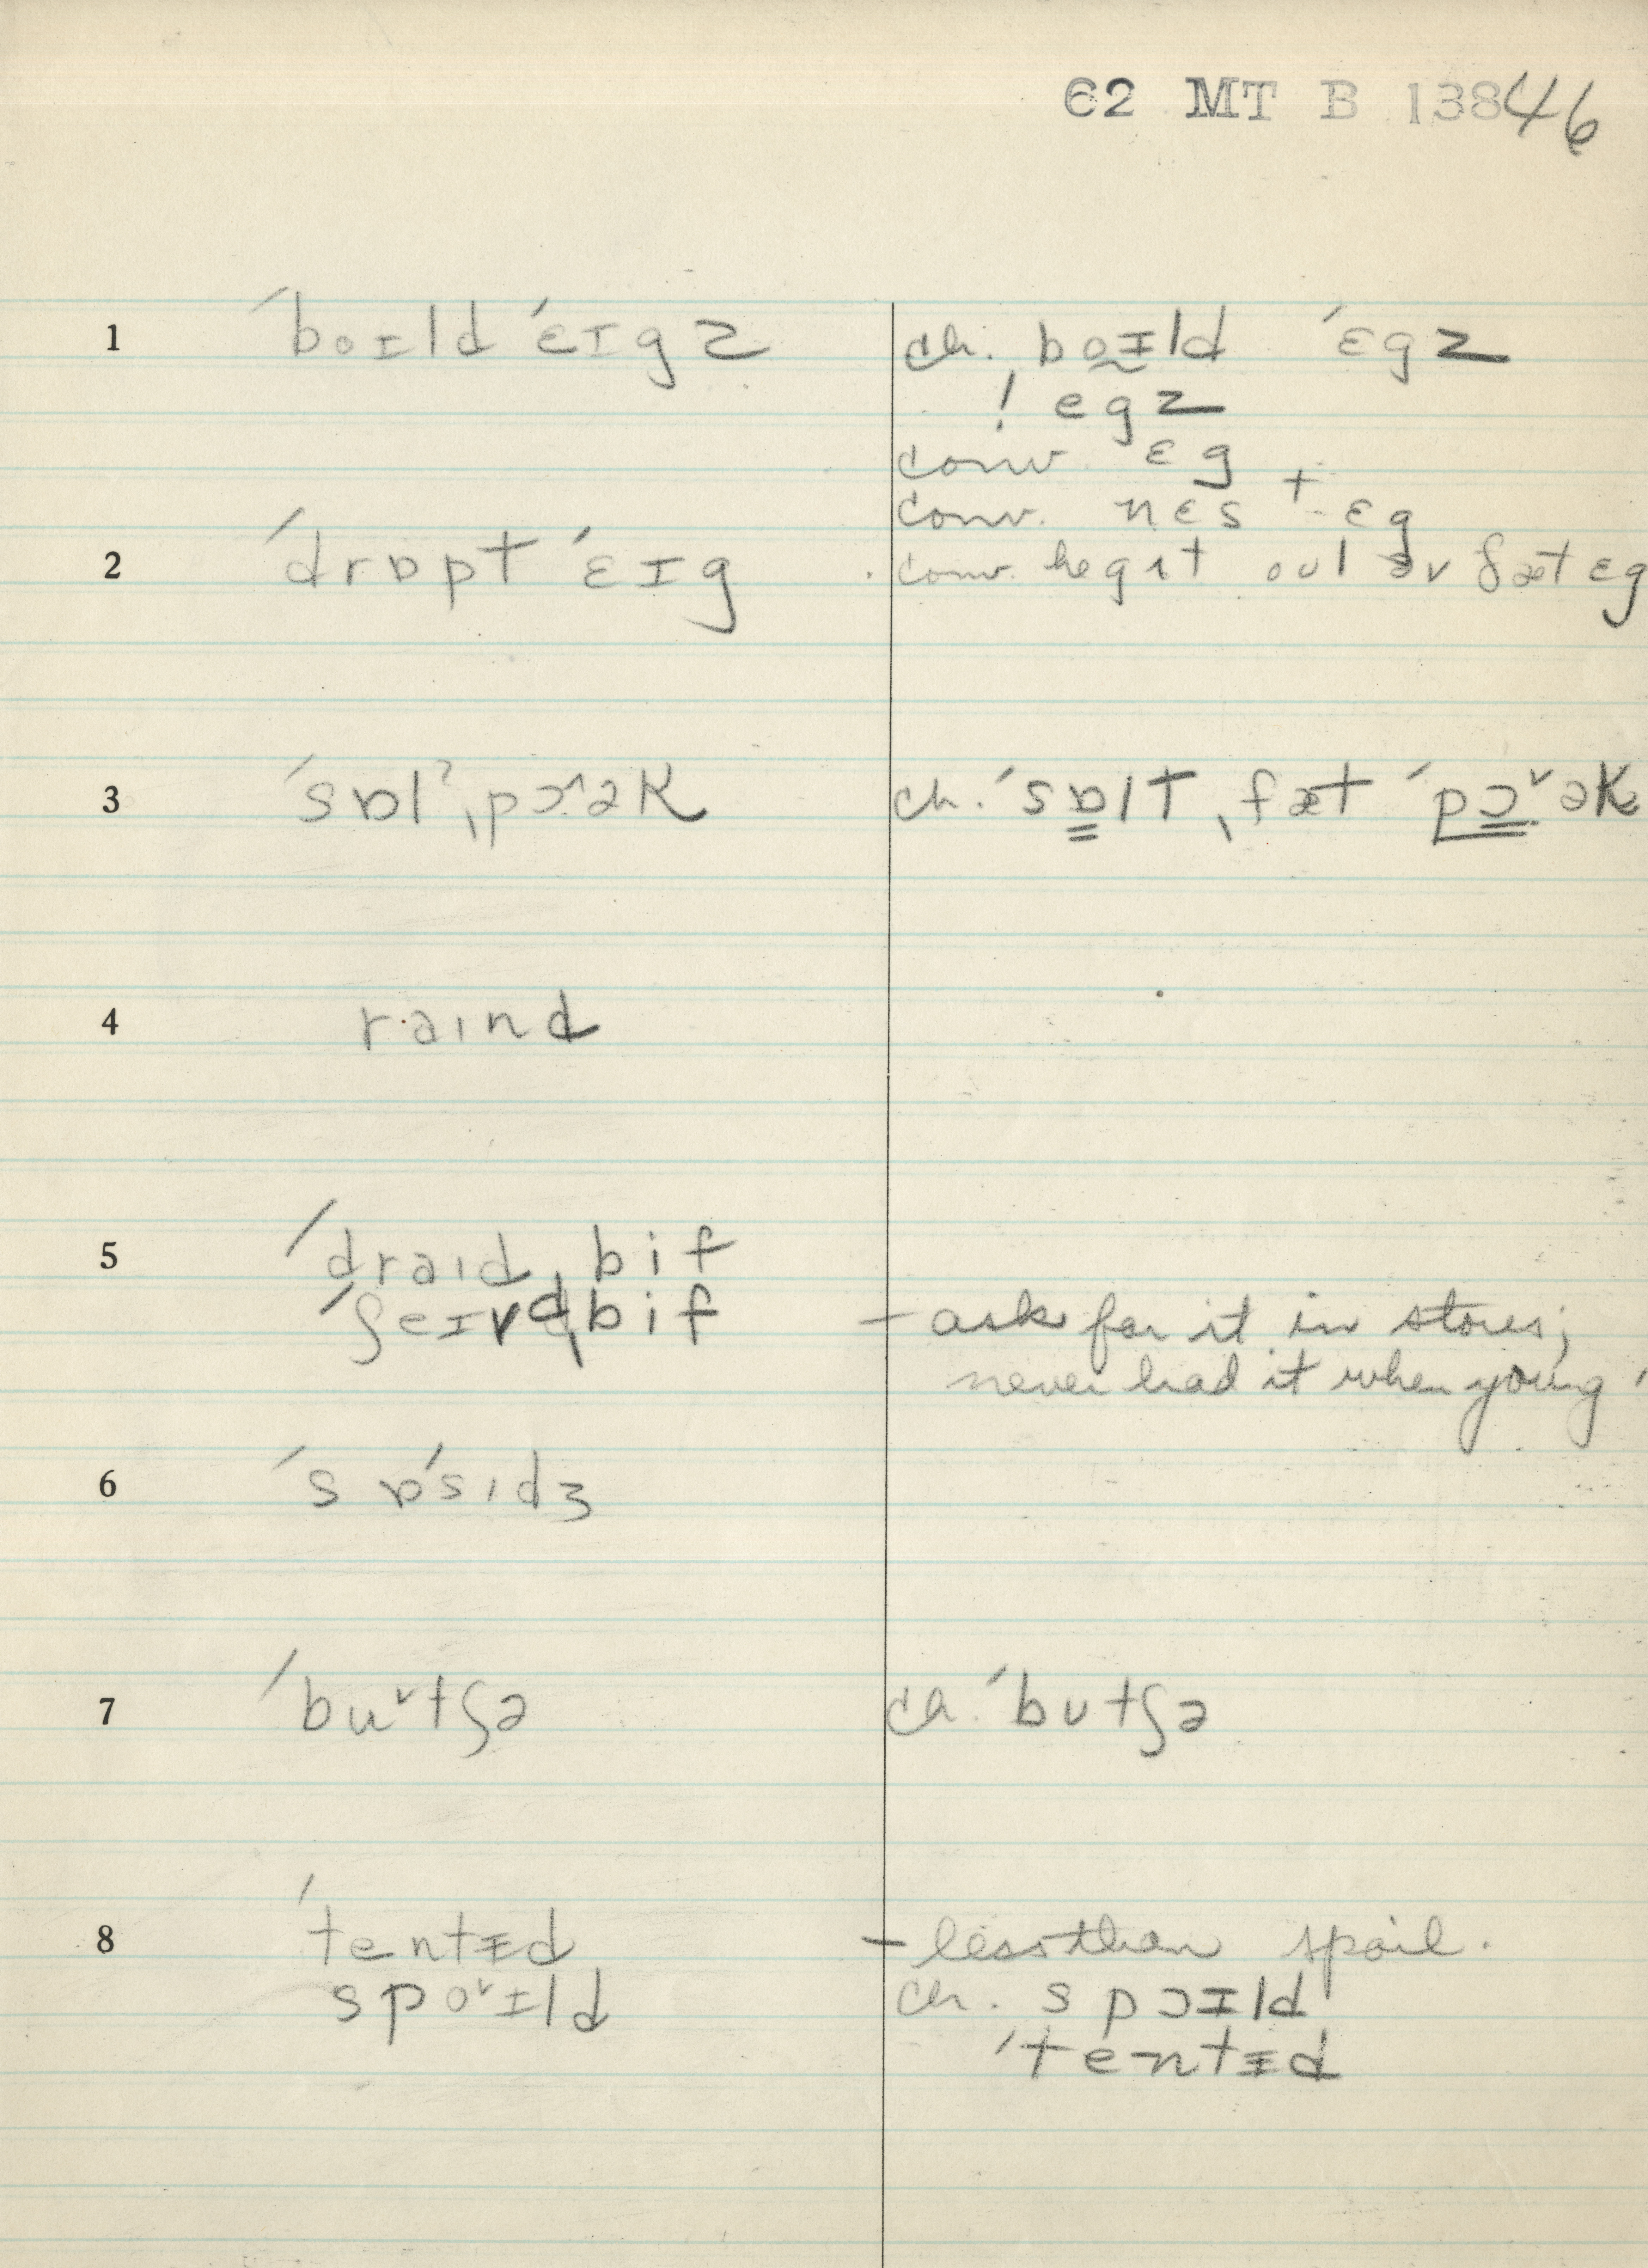 62 MT B 13846
1 ˊboɪld ˊɛɪgz ch. bo̰ɪld ˊɛgz
! egz
conv ɛg
conv. nɛs + ɛg
2 ˊdrɒpt ˊɛɪg conv. he gɪt oʊt əv ðæt ɛg
3 ˊsɒlˀ ˎpɔ^əK ch. ˊsɒlt ˎfæt ˊpɔ˅əK
4 raɪnd
5 ˊdraɪd ˎbif
ˊʃeɪvdˎbif – ask for it in stores;
never had it when young
6 ˊsɒˊsɪdʒ
7 ˊbu˅tʃə ch. ˊbʊtʃə
8 ˊtentɪd – less than spoil.
spo˅ɪld ch. spɔɪld
ˊtentɪd